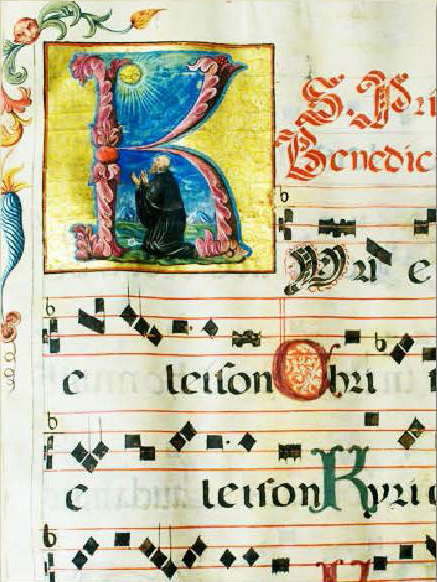 K
S. Pri
Benedic
Yri e
e leison Chri
e leison Kyri e